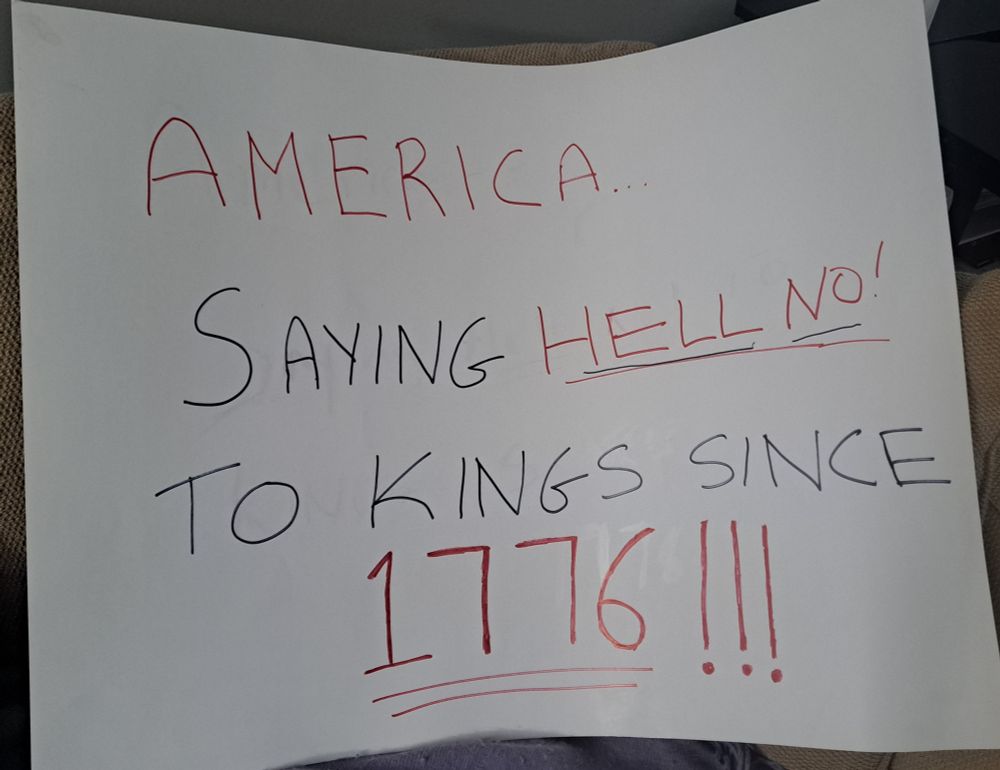 AMERICA...
SAYING HELL NO!
TO KINGS SINCE
1776!!!